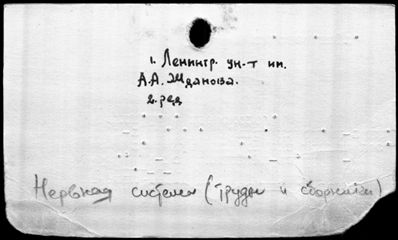 1. Ленингр. ун-т им.
А.А. Жданова.
2. ред
Нервная система (труды и сборники)